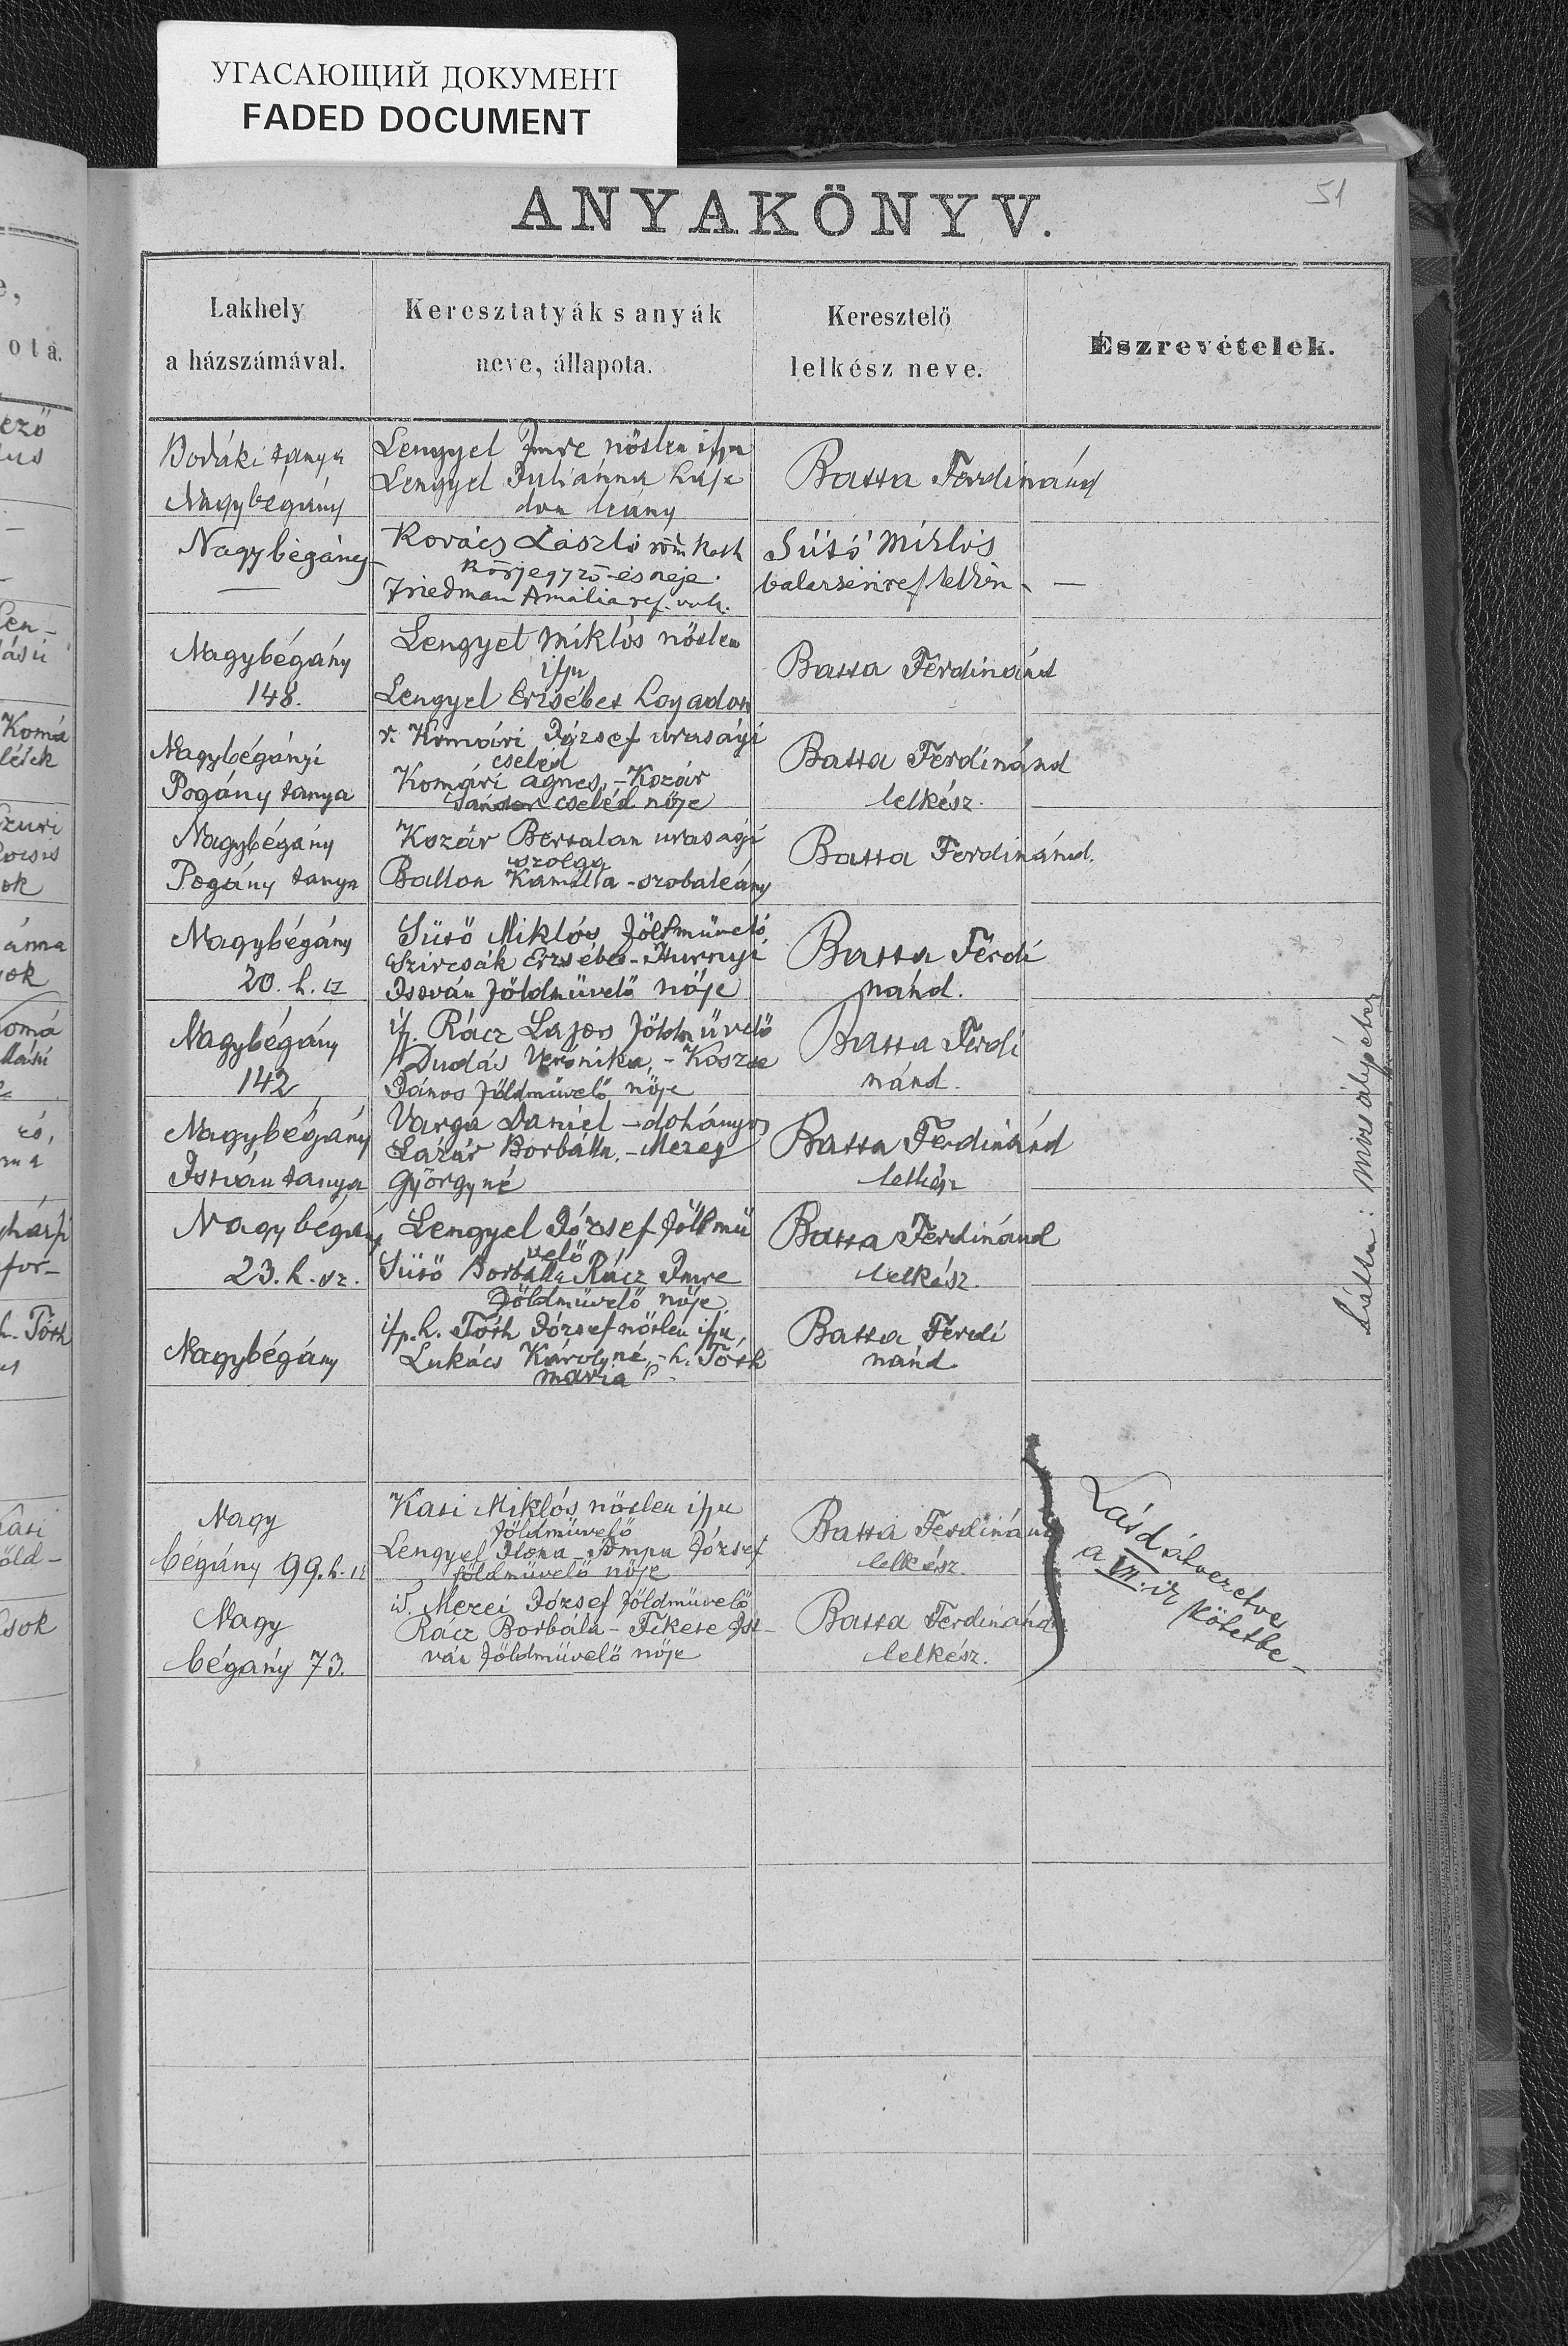 УГАСАЮЩИЙ ДОКУМЕНТ
FADED DOCUMENT
51
ANYAKÖNYV.
Lakhely
a házszámával.
Keresztatyák s anyák
neve, állapota.
Keresztelő
lelkész neve.
Észrevételek.
Bodáki tanya
Nagybégány
Lengyel Imre nőtlen ifju
Lengyel Juliánna haja
don leány
Batta Ferdinánd
Nagybégány
—
Kovács László róm kath
körjegyző és neje
Friedman Amália ref. vall.
Sütő Miklós
balazséri ref lelkész
—
Nagybégány
148.
Lengyel Miklós nőtlen
ifju
Lengyel Erzsébet hajadon
Batta Ferdinánd
Nagybégányi
Pogány tanya
r. Komári József urasági
cseléd
Komári Ágnes, - Kozár
Sándor cseléd nője
Batta Ferdinánd
lelkész.
Nagybégány
Pogány tanya
Kozár Bertalan urasági
szolga
Ballon Kamilla - szobaleány
Batta Ferdinánd.
Nagybégány
20. h. sz
Sütő Miklós földmüvelő
Szircsák Erzsébet - Hunyi
István földmüvelő nője
Batta Ferdi
nánd.
Nagybégány
142
if. Rácz Lajos földmüvelő
Dudás Verónika, - Koszta
János földmüvelő nője
Batta Ferdi
nánd.
Nagybégány
István tanya
Varga Dániel - dohányos
Lázár Borbálla, - Mezey
Györgyné
Batta Ferdinánd
lelkész
Nagybégány
23. h. sz.
Lengyel József földmü
velő
Sütő Borbálla Rácz Imre
földmüvelő nője
Batta Ferdinánd
lelkész.
Nagybégány
ifp. h. Tóth József nőtlen ifju,
Lukács Károlyné, - h. Tóth
Mária
Batta Ferdi
nánd
Nagy
bégány 99. h. sz
Kati Miklós nőtlen ifju
földmüvelő
Lengyel Ilona - Pompa József
földmüvelő nője
Batta Ferdinánd
lelkész.
Nagy
bégány 73.
id. Mezei József földmüvelő
Rácz Borbála - Fekete Ist-
ván földmüvelő nője
Batta Ferdinánd.
lelkész.
Lásd átvezetve
a VII. ik kötetbe -